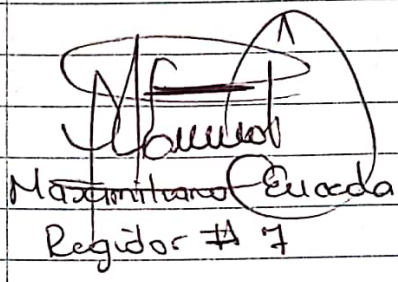 Maximiliano Euceda
Regidor # 7